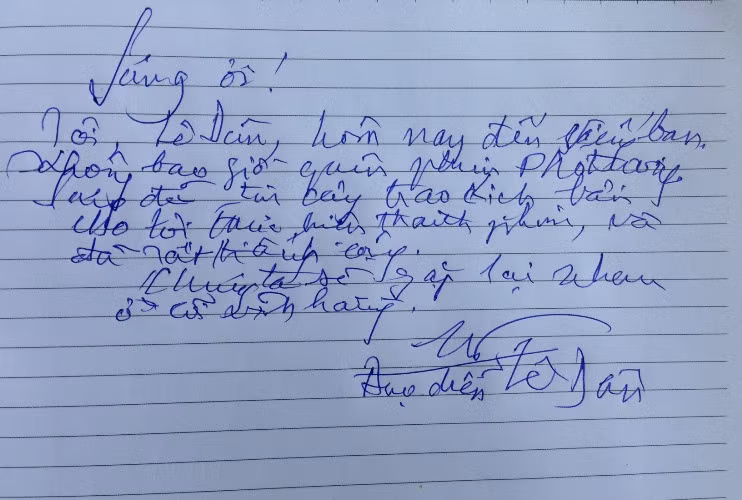 Sáng ơi!
Tôi, Lê Dân, hôm nay đến viếng bạn.
Không bao giờ quên phim
Sáng đã tin cậy trao kịch bản
cho tôi thực hiện thành phim, và
đã rất thành công.
Chúng ta sẽ gặp lại nhau
ở cõi vĩnh hằng.
Đạo diễn Lê Dân